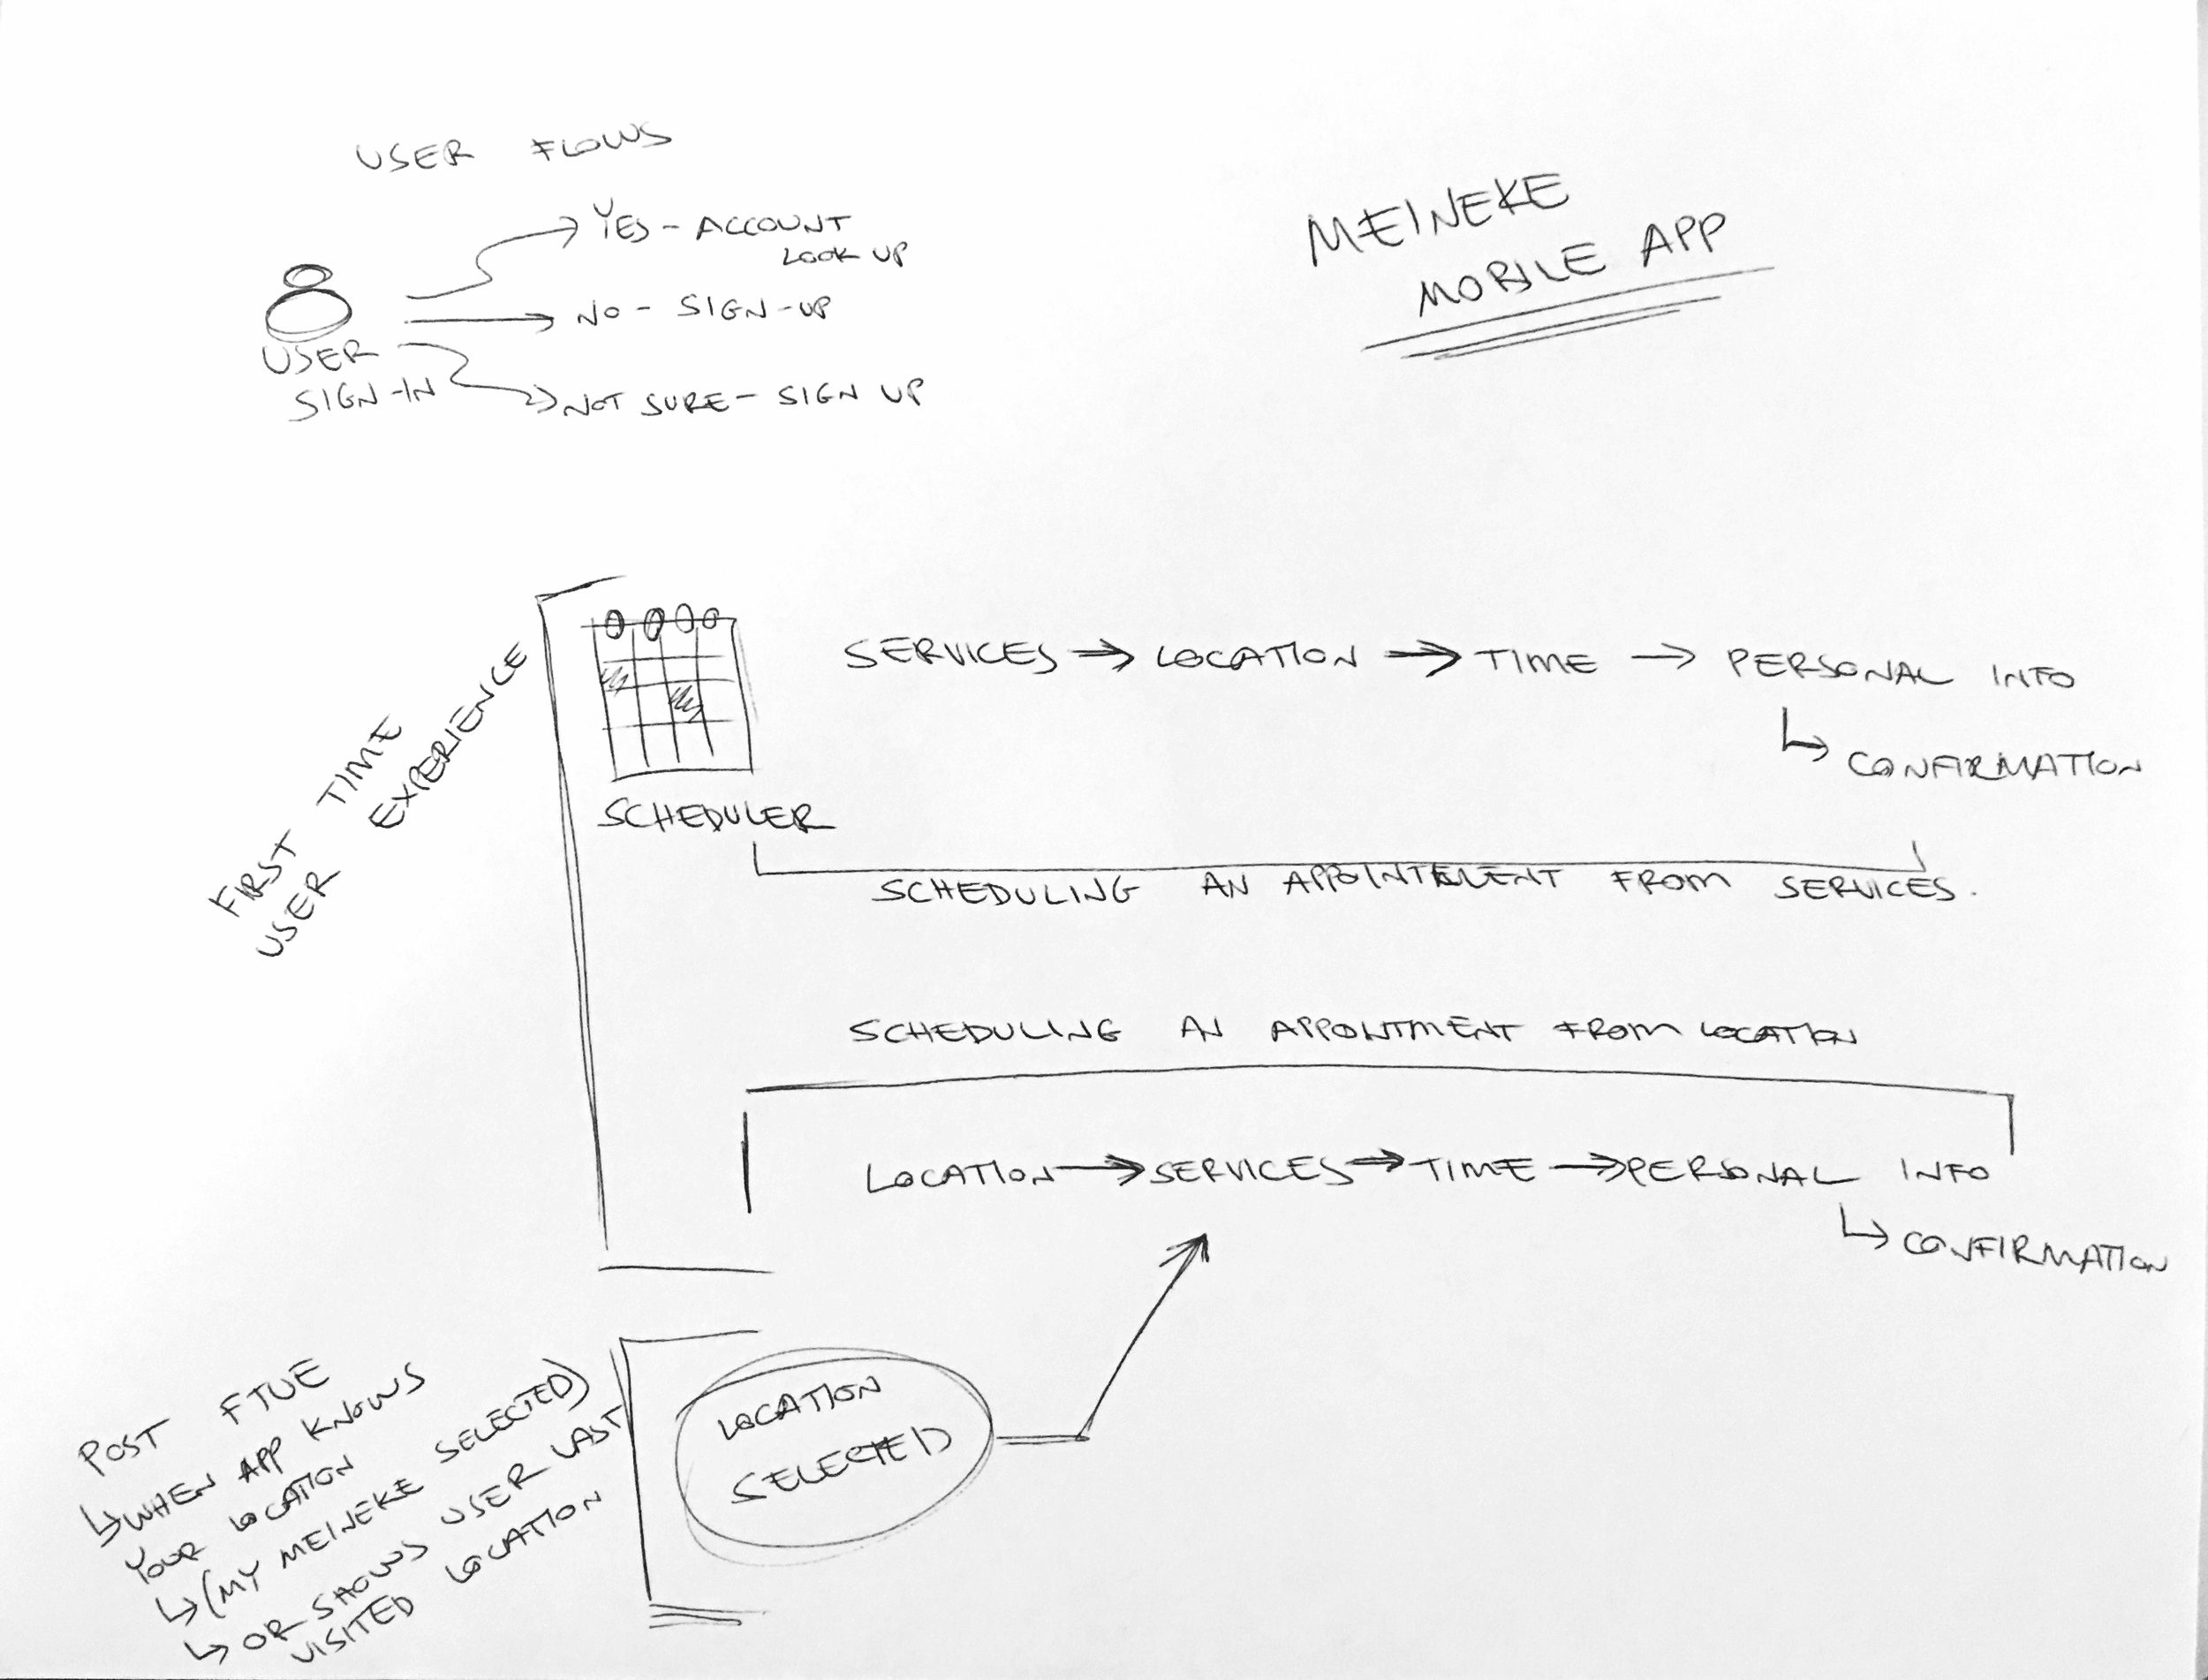 USER FLOWS
YES - ACCOUNT
LOOK UP
NO - SIGN-UP
USER
SIGN-IN
NOT SURE - SIGN UP
MEINEKE
MOBILE APP
FIRST TIME
USER EXPERIENCE
SCHEDULER
SERVICES → LOCATION → TIME → PERSONAL INFO
↳ CONFIRMATION
SCHEDULING AN APPOINTMENT FROM SERVICES.
SCHEDULING AN APPOINTMENT FROM LOCATION
LOCATION → SERVICES → TIME → PERSONAL INFO
↳ CONFIRMATION
POST FTUE
↳ WHEN APP KNOWS
YOUR LOCATION
↳ (MY MEINEKE SELECTED)
↳ OR SHOWS USER LAST
VISITED LOCATION
LOCATION
SELECTED